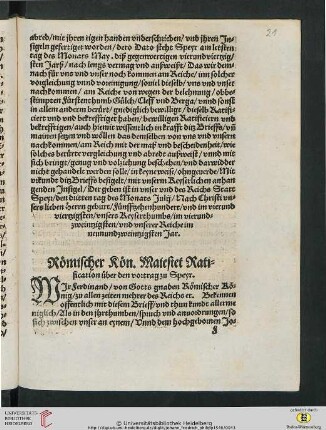 21
abred/ wie jhren eigen handen vnderschrieben/ vnd jhren In-
sigeln gefertiget worden/ dero Dato stehe Speyr am letsten
tag des Monats May/ diß gegenwertigen vierundviertzig/
sten Jars/ nach lengs vermag vnd außweißt/ Das wir dem-
nach für vns vnd vnser nachkommen am Reiche/ inn solcher
vergleichung vnnd vereynigung/ souiel dieselb/ vns vnd vnser
nachkommen/ am Reiche von wegen der belehnung/ obbe-
stimpten Fürstenthumb Gülch/ Cleff vnd Berg/ vnnd sonst
in allem anderm berürt/ gnediglich bewilligt/ dieselb Ratifi-
ciert vnd vnd bekrefftiget haben/ bewilligen Ratificieren vnd
bekrefftigen/ auch hiemit wissentlich in krafft ditz Brieffs/ vñ
mainen setzen vnd wöllen das demselben von vns/ vnd vnsern
nachkommen/ am Reich mit der maß vnd bescheidenheit/ wie
solches berürte vergleichung vnd abrede außweist/ vnnd mit
sich bringt/ genüg vnd volziehung beschehen/ vnd darwider
nicht gehandelt werden solle/ in keyne weiß/ ohngeuerde/ Mit
vrkundt ditz Brieffs besigelt/ mit vnserm Keyserlichen anhan
genden Insigel/ Der geben ist in vnser vnd des Reichs Statt
Speyr/ den dritten tag des Monats Julij/ Nach Christi vn-
sers lieben Herrn geburt/ fünfftzehenhundert/ vnd im vierund
viertzigsten/ vnsers Keyserthumbs/ im vierund-
zweintzigsten/ vnd vnserer Reiche im
neunundzweintzigsten Jar.
Römischer Kön. Maiestet Rati-
fication über den vortrag zu Speyr.
WIr Ferdinand/ von Gotts gnaden Römischer Kö-
nig/ zu allen zeiten mehrer des Reichs rc. Bekennen
offentlich mit diesem Brieff/ vnd thun kundt allerme
niglich/ Als in den jhrthumben/ spruch vnd anuorderungen/ so
sich zwischen vnser an eynem/ Vnnd dem hochgebornen Jo-
UNIVERSITÄTS-
BIBLIOTHEK
HEIDELBERG
© Universitätsbibliothek Heidelberg
gefördert durch
Baden-Württemberg